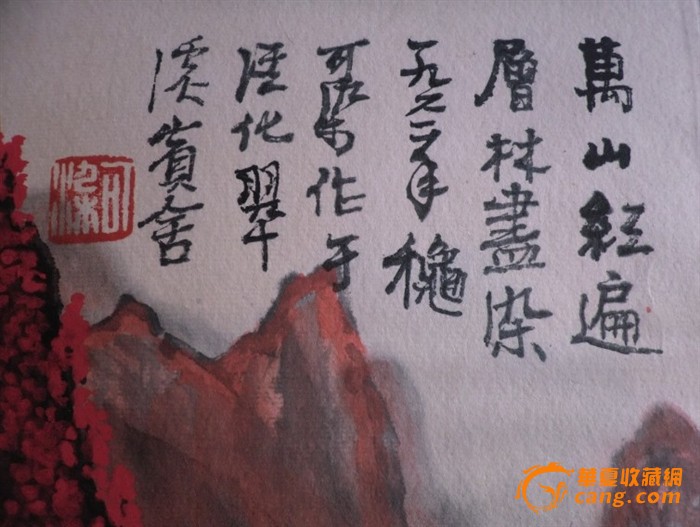 萬山紅遍
層林盡染
一九六二年穐
可染作于
從化翠
溪賓舍
可染
華夏收藏網
cang.com